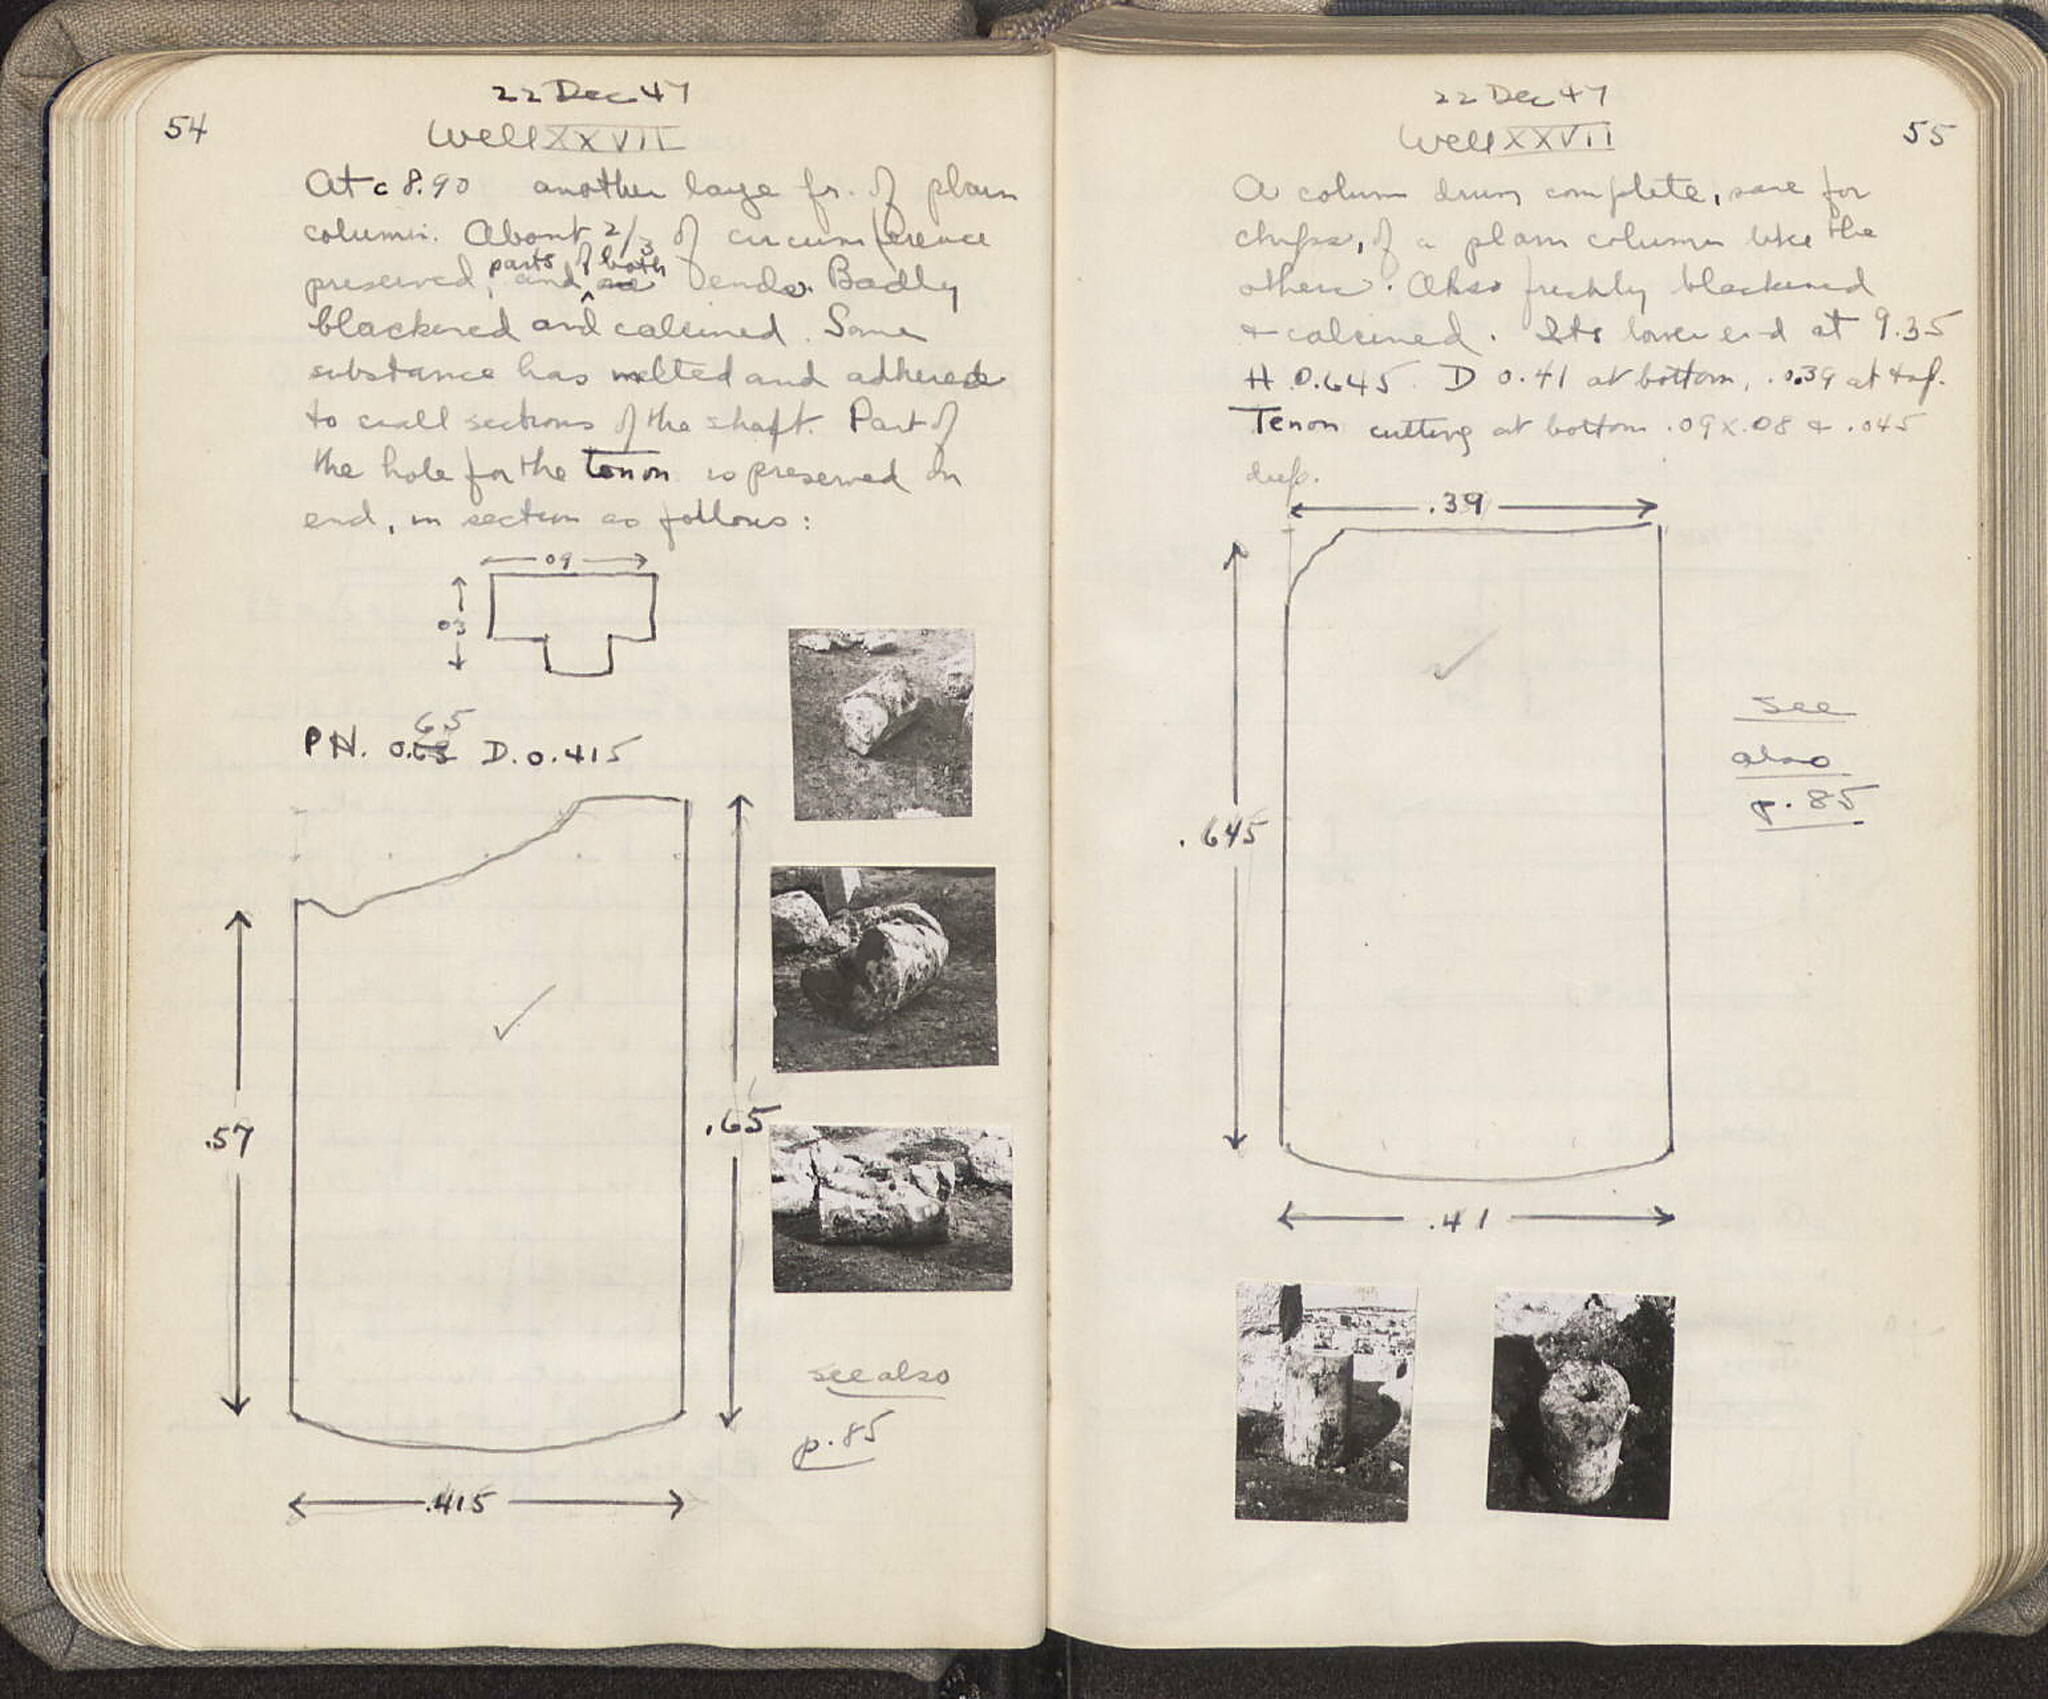 22 Dec 47
54
Well XXVII
At c 8.90 another large fr. of plain
column. About 2/3 of circumference
preserved, and parts of both ends. Badly
blackened and calcined. Some
substance has melted and adheres
to small sections of the shaft. Part of
the hole for the tenon is preserved on
end, in section as follows:
09
03
65
PH. 0.63 D. 0.415
.57
.65
.415
see also
p. 85
22 Dec 47
Well XXVII
55
A column drum complete, save for
chips, of a plain column like the
others. Also freshly blackened
+ calcined. Its lower end at 9.35
H 0.645 D 0.41 at bottom, 0.39 at top.
Tenon cutting at bottom .09 x .08 & .045
deep.
.39
.645
see
also
p. 85
.41